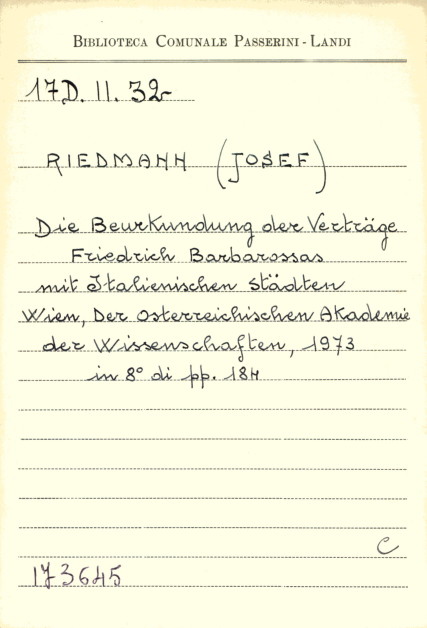 BIBLIOTECA COMUNALE PASSERINI - LANDI
17D. II. 32
RIEDMANN (JOSEF)
Die Beurkundung der Verträge
Friedrich Barbarossas
mit Italienischen Städten
Wien, Der Osterreichischen Akademie
der Wissenschaften, 1973
in 8° di pp. 184
C
173645